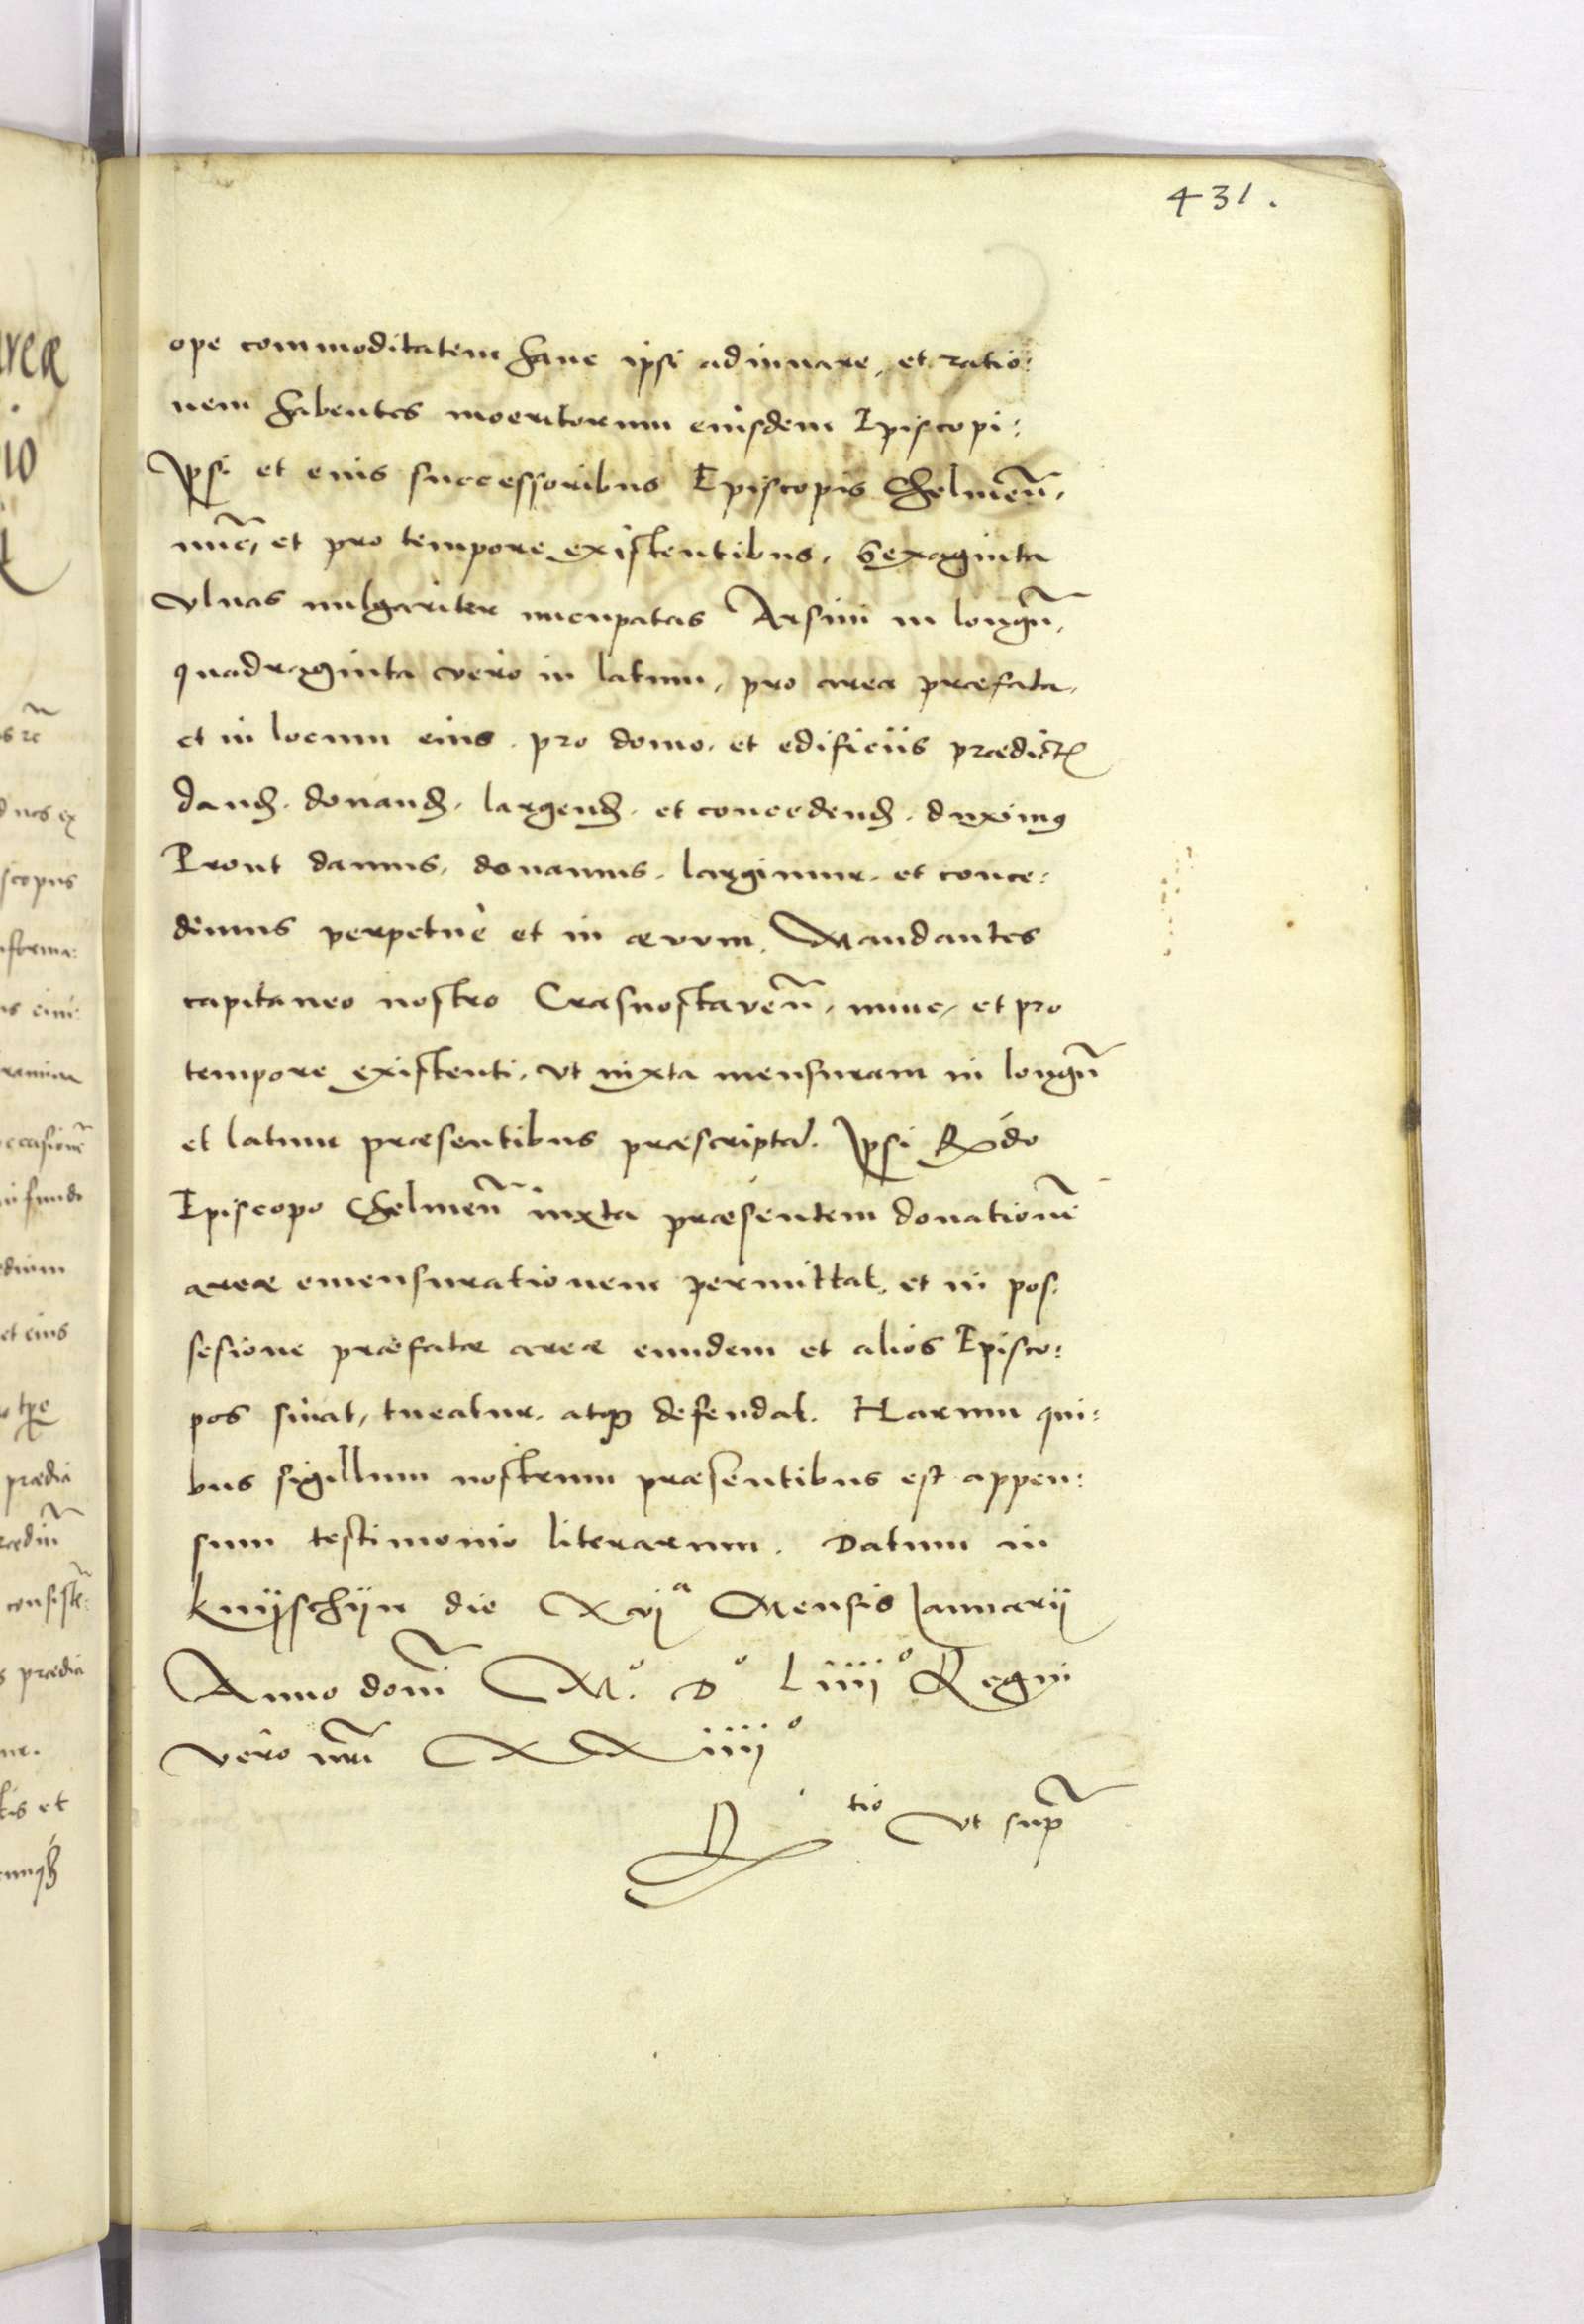 431.
ope commoditatem hanc ipsi adiuuare, et ratio:
nem habentes moeritorum eiusdem Episcopi:
Ipsi et eius successoribus Episcopis Chelmeñ,
nũc, et pro tempore existentibus, sexaginta
vlnas uulgariter nucupatas Arsini in longũ,
quadraginta vero in latum, pro area præfata,
et in locum eius, pro domo, et edificiis prædict
dand. donand. largend. et concedend. duximus
Prout damus, donamus, largimur, et conce:
dimus perpetuè et in æuum, Mandantes
capitaneo nostro Crasnostaveñ, nunc, et pro
tempore existenti, vt iuxta mensuram in longũ
et latum præsentibus præscripta. Ipsi Rndo
Episcopo Chelmeñ iuxta præsentem donationẽ
areæ emensurationem permittat, et in pos:
sesione præfatæ areæ eundem et alios Episco:
pos sinat, tueatur, atq defendat. Harum qui:
bus sigillum nostrum præsentibus est appen:
sum testimonio literarum. Datum in
Knijschijn die Xvjª Mensis Januarij
Anno domĩ M.º Dº Liiijº Regni
vero nrĩ XXiiijº
R tio vt sup